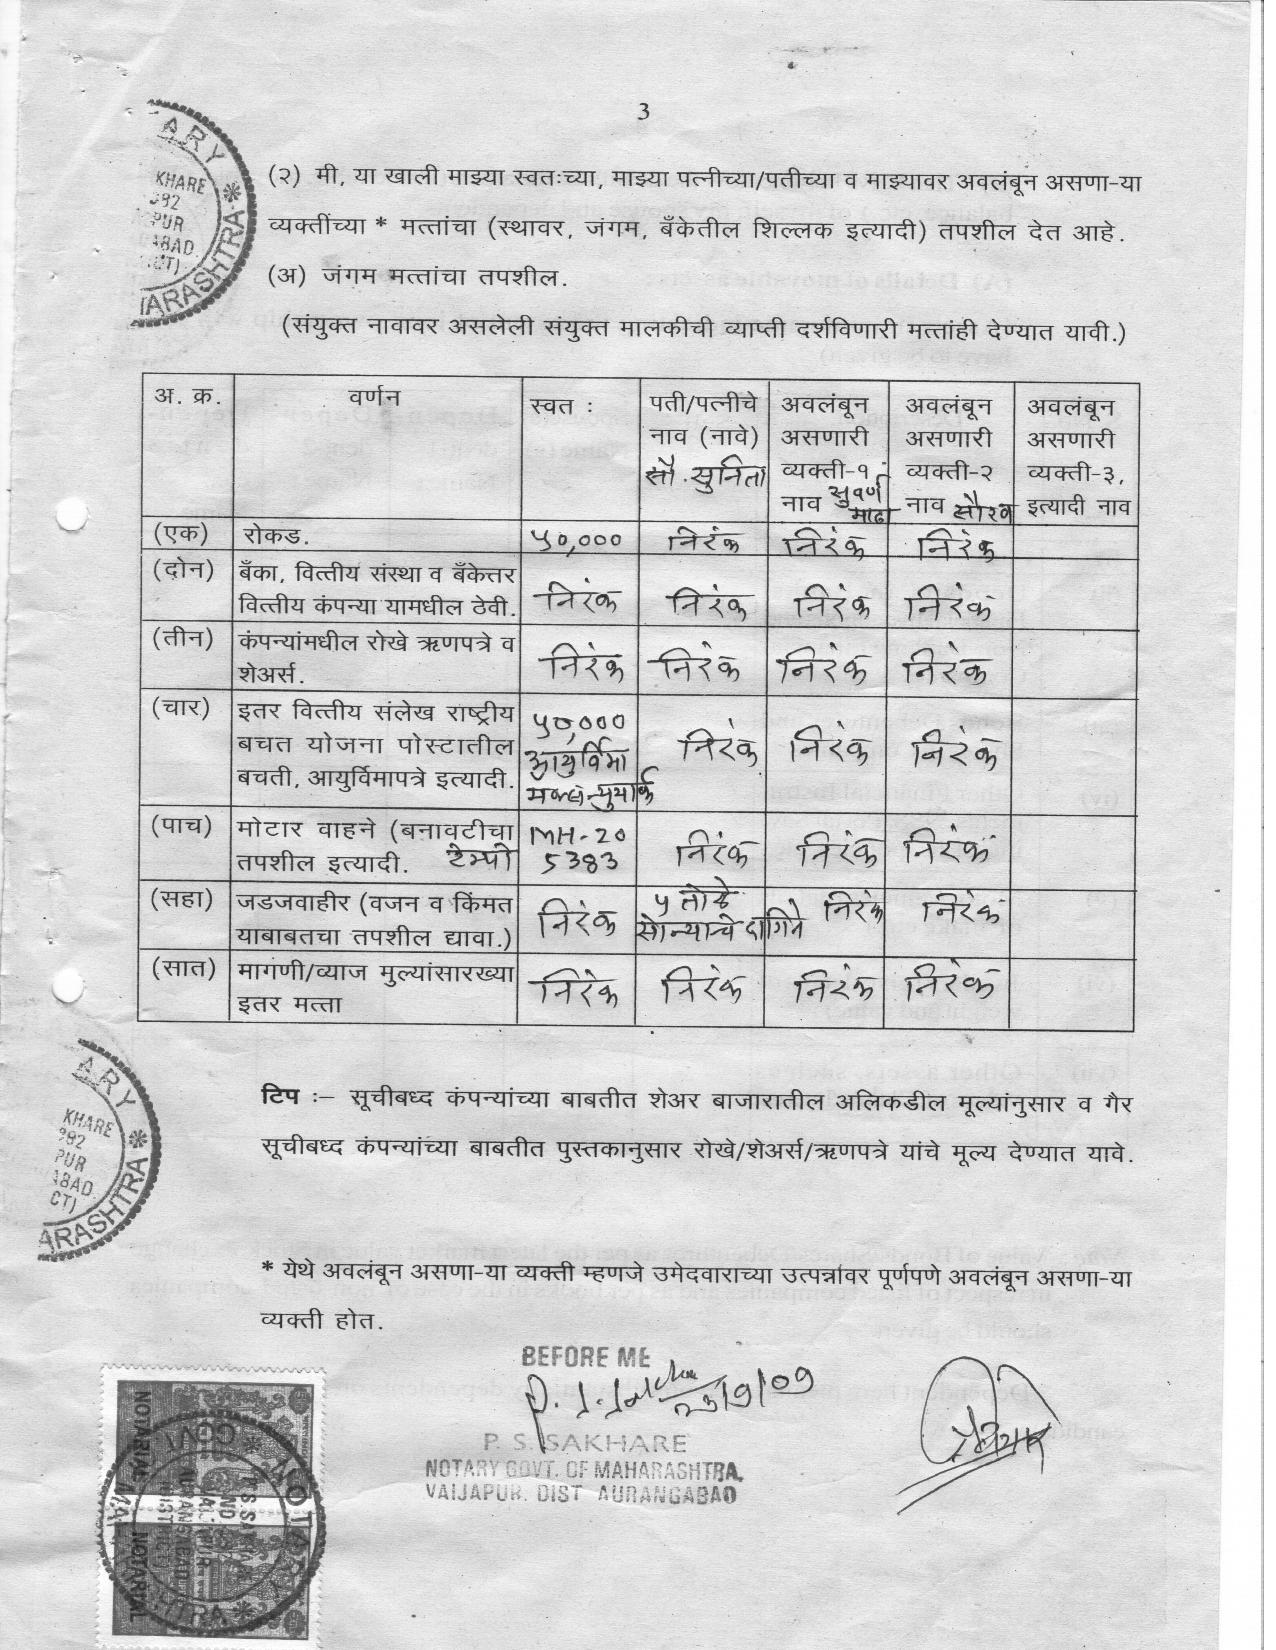 3
(२) मी, या खाली माझ्या स्वतःच्या, माझ्या पत्नीच्या/पतीच्या व माझ्यावर अवलंबून असणा-या
व्यक्तींच्या * मत्तांचा (स्थावर, जंगम, बँकेतील शिल्लक इत्यादी) तपशील देत आहे.
(अ) जंगम मत्तांचा तपशील.
(संयुक्त नावावर असलेली संयुक्त मालकीची व्याप्ती दर्शविणारी मत्तांही देण्यात यावी.)
अ. क्र. वर्णन स्वत : पती/पत्नीचे अवलंबून अवलंबून अवलंबून
नाव (नावे) असणारी असणारी असणारी
सौ. सुनिता व्यक्ती-१ व्यक्ती-२ व्यक्ती-३,
नाव सुवर्णमाला नाव सौरव इत्यादी नाव
(एक) रोकड. ५०,००० निरंक निरंक निरंक
(दोन) बँका, वित्तीय संस्था व बँकेत्तर
वित्तीय कंपन्या यामधील ठेवी. निरंक निरंक निरंक निरंक
(तीन) कंपन्यांमधील रोखे ऋणपत्रे व
शेअर्स. निरंक निरंक निरंक निरंक
(चार) इतर वित्तीय संलेख राष्ट्रीय ५०,०००
बचत योजना पोस्टातील आयुर्विमा निरंक निरंक निरंक
बचती, आयुर्विमापत्रे इत्यादी.
(पाच) मोटार वाहने (बनावटीचा MH-20
तपशील इत्यादी. टेम्पो 5383 निरंक निरंक निरंक
(सहा) जडजवाहीर (वजन व किंमत ५ तोळे
याबाबतचा तपशील द्यावा.) निरंक सोन्याचे दागिने निरंक निरंक
(सात) मागणी/व्याज मुल्यांसारख्या
इतर मत्ता निरंक निरंक निरंक निरंक
टिप :– सूचीबध्द कंपन्यांच्या बाबतीत शेअर बाजारातील अलिकडील मूल्यांनुसार व गैर
सूचीबध्द कंपन्यांच्या बाबतीत पुस्तकानुसार रोखे/शेअर्स/ऋणपत्रे यांचे मूल्य देण्यात यावे.
* येथे अवलंबून असणा-या व्यक्ती म्हणजे उमेदवाराच्या उत्पन्नांवर पूर्णपणे अवलंबून असणा-या
व्यक्ती होत.
BEFORE ME
23/9/09
P. S. SAKHARE
NOTARY GOVT. OF MAHARASHTRA.
VAIJAPUR. DIST AURANGABAD
NOTARIAL
NOTARIAL